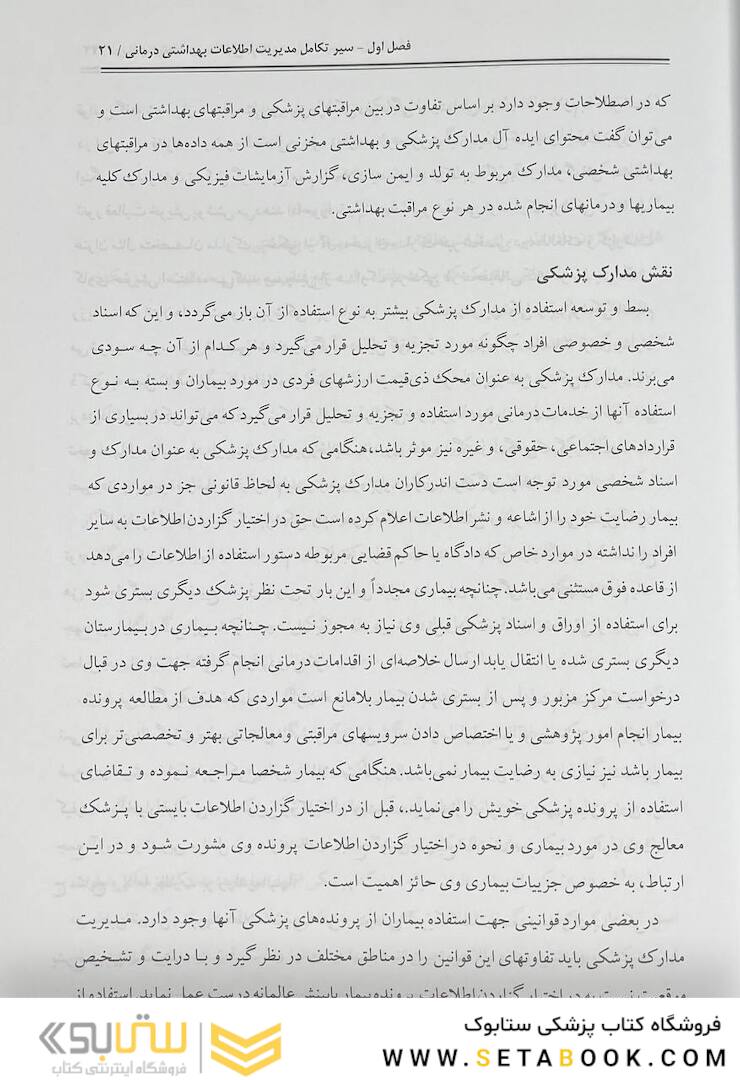 فصل اول - سیر تکامل مدیریت اطلاعات بهداشتی درمانی / ۲۱
که در اصطلاحات وجود دارد بر اساس تفاوت در بین مراقبتهای پزشکی و مراقبتهای بهداشتی است و
می‌توان گفت محتوای ایده آل مدارک پزشکی و بهداشتی مخزنی است از همه داده‌ها در مراقبتهای
بهداشتی شخصی، مدارک مربوط به تولد و ایمن سازی، گزارش آزمایشات فیزیکی و مدارک کلیه
بیماریها و درمانهای انجام شده در هر نوع مراقبت بهداشتی.
نقش مدارک پزشکی
بسط و توسعه استفاده از مدارک پزشکی بیشتر به نوع استفاده از آن باز می‌گردد، و این که اسناد
شخصی و خصوصی افراد چگونه مورد تجزیه و تحلیل قرار می‌گیرد و هر کدام از آن چه سودی
می‌برند. مدارک پزشکی به عنوان محک ذی‌قیمت ارزشهای فردی در مورد بیماران و بسته به نوع
استفاده آنها از خدمات درمانی مورد استفاده و تجزیه و تحلیل قرار می‌گیرد که می‌تواند در بسیاری از
قراردادهای اجتماعی، حقوقی، و غیره نیز موثر باشد، هنگامی که مدارک پزشکی به عنوان مدارک و
اسناد شخصی مورد توجه است دست اندرکاران مدارک پزشکی به لحاظ قانونی جز در مواردی که
بیمار رضایت خود را از اشاعه و نشر اطلاعات اعلام کرده است حق در اختیار گزاردن اطلاعات به سایر
افراد را نداشته در موارد خاص که دادگاه یا حاکم قضایی مربوطه دستور استفاده از اطلاعات را می‌دهد
از قاعده فوق مستثنی می‌باشد. چنانچه بیماری مجدداً و این بار تحت نظر پزشک دیگری بستری شود
برای استفاده از اوراق و اسناد پزشکی قبلی وی نیاز به مجوز نیست. چنانچه بیماری در بیمارستان
دیگری بستری شده یا انتقال یابد ارسال خلاصه‌ای از اقدامات درمانی انجام گرفته جهت وی در قبال
درخواست مرکز مزبور و پس از بستری شدن بیمار بلامانع است مواردی که هدف از مطالعه پرونده
بیمار انجام امور پژوهشی و یا اختصاص دادن سرویسهای مراقبتی و معالجاتی بهتر و تخصصی‌تر برای
بیمار باشد نیز نیازی به رضایت بیمار نمی‌باشد. هنگامی که بیمار شخصا مراجعه نموده و تقاضای
استفاده از پرونده پزشکی خویش را می‌نماید.، قبل از در اختیار گزاردن اطلاعات بایستی با پزشک
معالج وی در مورد بیماری و نحوه در اختیار گزاردن اطلاعات پرونده وی مشورت شود و در این
ارتباط، به خصوص جزییات بیماری وی حائز اهمیت است.
در بعضی موارد قوانینی جهت استفاده بیماران از پرونده‌های پزشکی آنها وجود دارد. مدیریت
مدارک پزشکی باید تفاوتهای این قوانین را در مناطق مختلف در نظر گیرد و با درایت و تشخیص
موقعیت نسبت به در اختیار گزاردن اطلاعات پرونده بیمار با بینش عالمانه درست عمل نماید. استفاده از
فروشگاه کتاب پزشکی ستابوک
WWW.SETABOOK.COM
ستابوک
فروشگاه اینترنتی کتاب